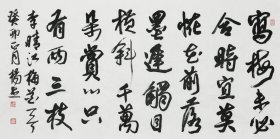 寫梅未必
合時宜莫
怪花前落
墨遲觸目
橫斜千萬
朵賞心只
有兩三枝
李晴江梅花
癸卯正月楊